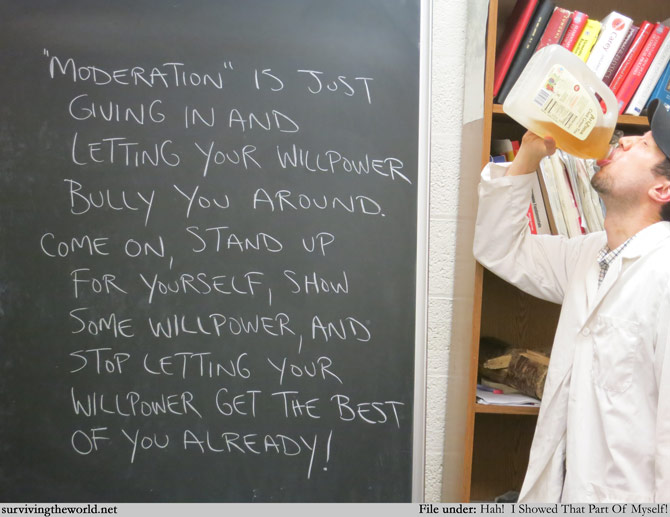 "MODERATION" IS JUST
GIVING IN AND
LETTING YOUR WILLPOWER
BULLY YOU AROUND.
COME ON, STAND UP
FOR YOURSELF, SHOW
SOME WILLPOWER, AND
STOP LETTING YOUR
WILLPOWER GET THE BEST
OF YOU ALREADY!
survivingtheworld.net
File under: Hah! I Showed That Part Of Myself!